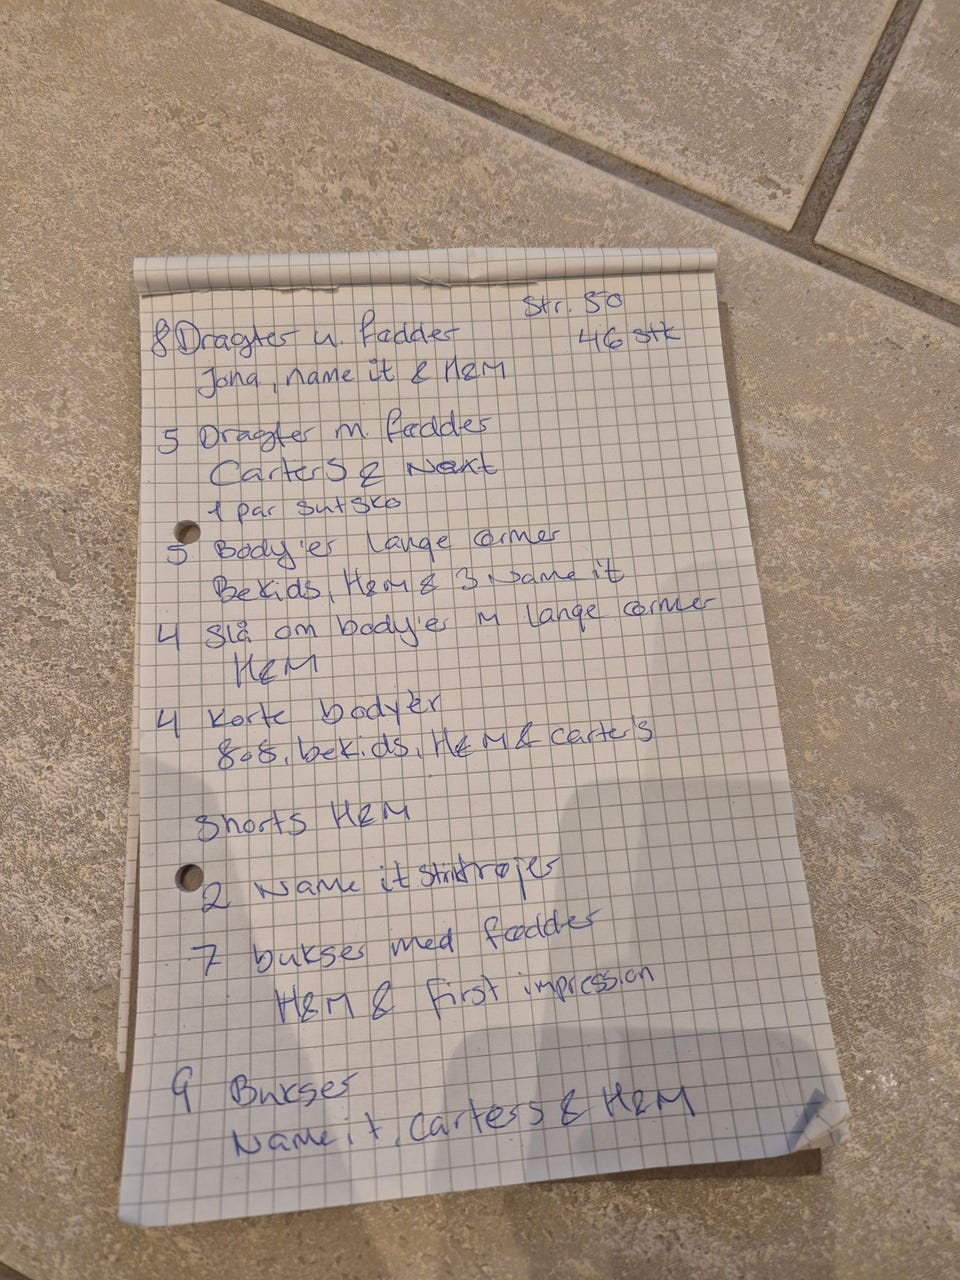 Str. 50
8 Dragter u. fødder 46 stk
Jona, name it & H&M
5 Dragter m. fødder
Carters & Next
1 par sutsko
5 Body'er lange ærmer
Bekids, H&M & 3 Name it
4 Slå om body'er m lange ærmer
H&M
4 korte body'er
bekids, H&M & carter's
Shorts H&M
2 Name it striktrøjer
7 bukser med fødder
H&M & first impression
9 Bukser
Name it, carters & H&M